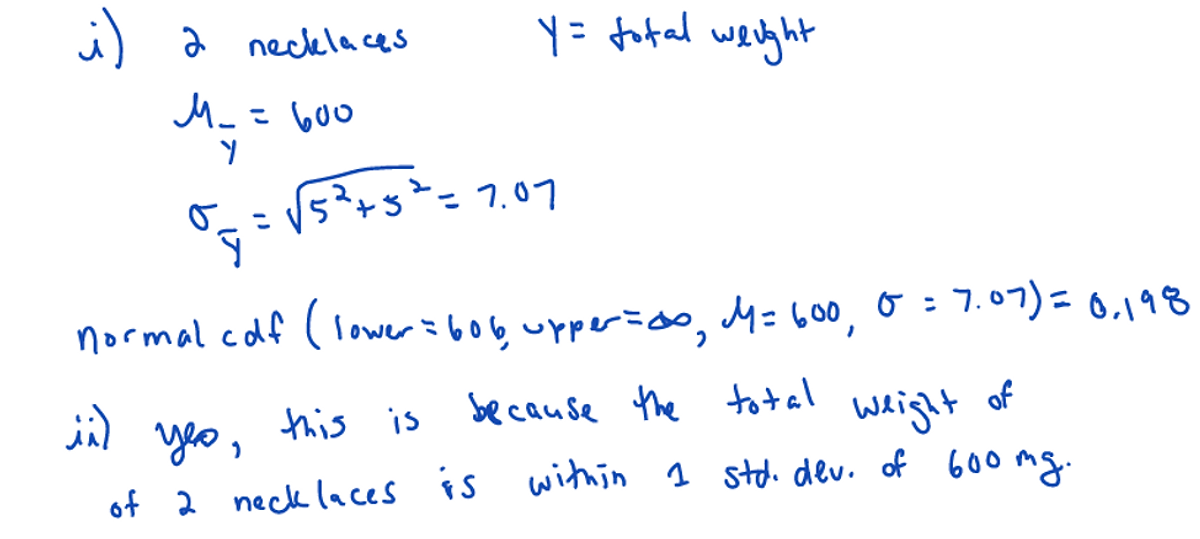 i) 2 necklaces Y = total weight
μ_Ȳ = 600
σ_Ȳ = √(5² + 5²) = 7.07
normal cdf ( lower = 606, upper = ∞, μ = 600, σ = 7.07) = 0.198
ii) yes, this is because the total weight of
of 2 necklaces is within 1 std. dev. of 600 mg.